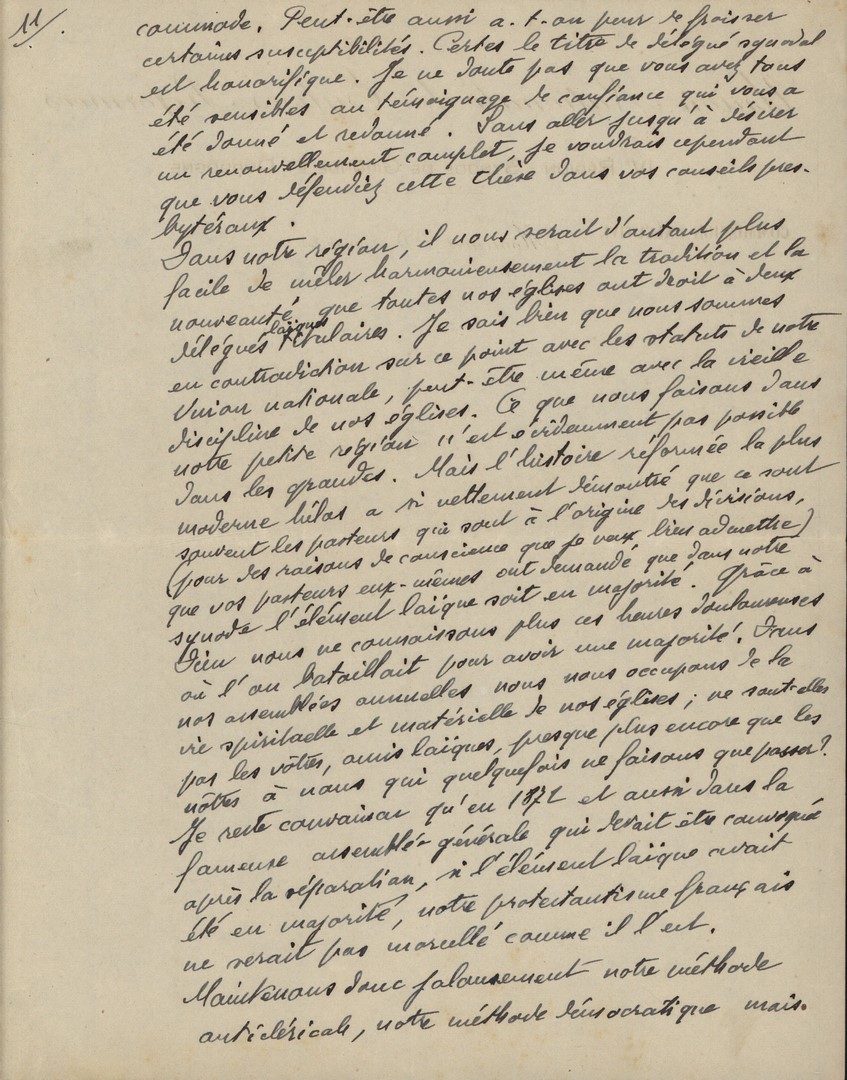 11/.
commode. Peut-être aussi a-t-on peur de froisser
certaines susceptibilités. Certes le titre de délégué synodal
est honorifique. Je ne doute pas que vous avez tous
été sensibles au témoignage de confiance qui vous a
été donné et redonné. Sans aller jusqu'à désirer
un renouvellement complet, je voudrais cependant
que vous défendiez cette thèse dans vos conseils pres-
bytéraux.
Dans notre région, il nous serait d'autant plus
facile de mêler harmonieusement la tradition et la
nouveauté, que toutes nos églises ont droit à deux
délégués laïques titulaires. Je sais bien que nous sommes
en contradiction sur ce point avec les statuts de notre
Union nationale, peut-être même avec la vieille
discipline de nos églises. Ce que nous faisons dans
notre petite région n'est évidemment pas possible
dans les grandes. Mais l'histoire réformée la plus
moderne hélas a si nettement démontré que ce sont
souvent les pasteurs qui sont à l'origine des divisions,
(pour des raisons de conscience que je veux bien admettre)
que vos pasteurs eux-mêmes ont demandé que dans notre
synode l'élément laïque soit en majorité. Grâce à
Dieu nous ne connaissons plus ces heures douloureuses
où l'on bataillait pour avoir une majorité. Dans
nos assemblées annuelles nous nous occupons de la
vie spirituelle et matérielle de nos églises; ne sont-elles
pas les vôtres, amis laïques, presque plus encore que les
nôtres à nous qui quelquefois ne faisons que passer?
Je reste convaincu qu'en 1872 et aussi dans la
fameuse assemblée générale qui devait être convoquée
après la séparation, si l'élément laïque avait
été en majorité, notre protestantisme français
ne serait pas morcellé comme il l'est.
Maintenons donc jalousement notre méthode
anticléricale, notre méthode démocratique mais.